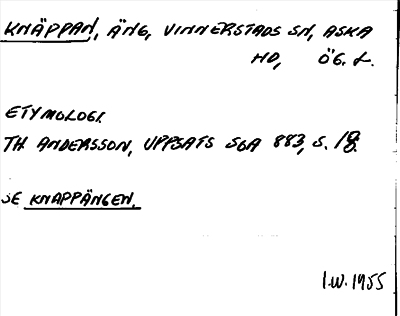 KNÄPPAN, ÄNG, VINNERSTADS SN, ASKA
HD, ÖG. L.
ETYMOLOGI.
TH. ANDERSSON, UPPSATS SOA 883, S.
SE KNAPPÄNGEN.
I.W. 1955